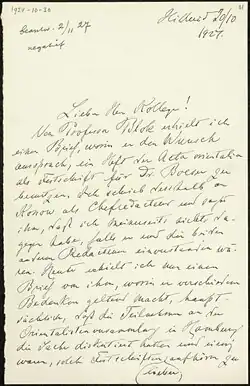 1927-10-20
81
Hillerød 20/10
1927.
Beantw. 2/11 27
negativ
Lieber Herr Kollege!
Von Professor Blok erhielt ich
einen Brief, worin er den Wunsch
aussprach, ein Heft der Acta orientalia
als Festschrift für Dr. Boeser zu
benützen. Ich schrieb deshalb an
Konow als Chefredacteur und sagte
ihm, daß ich meinerseits nichts da-
gegen habe, falls er und die beiden
anderen Redacteure einverstanden wä-
ren. Heute erhielt ich nun einen
Brief von ihm, worin er verschiedene
Bedenken geltend macht, haupt-
sächlich, daß die Teilnehmer an der
Orientalistenversammlung in Hamburg
die Sache diskutiert hatten und einig
waren, solch Festschriften